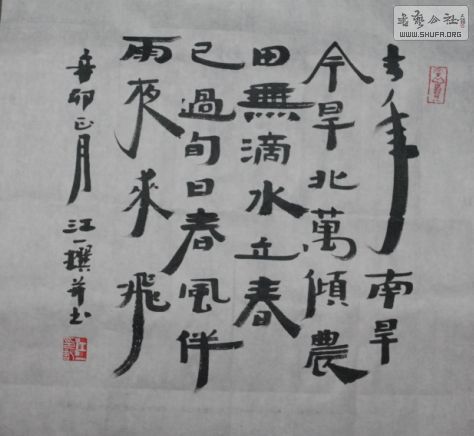 去年南旱
今旱北萬傾農
田無滴水立春
已過旬日春風伴
雨夜來飛
辛卯正月 江一撰并书
書藝公社
WWW.SHUFA.ORG